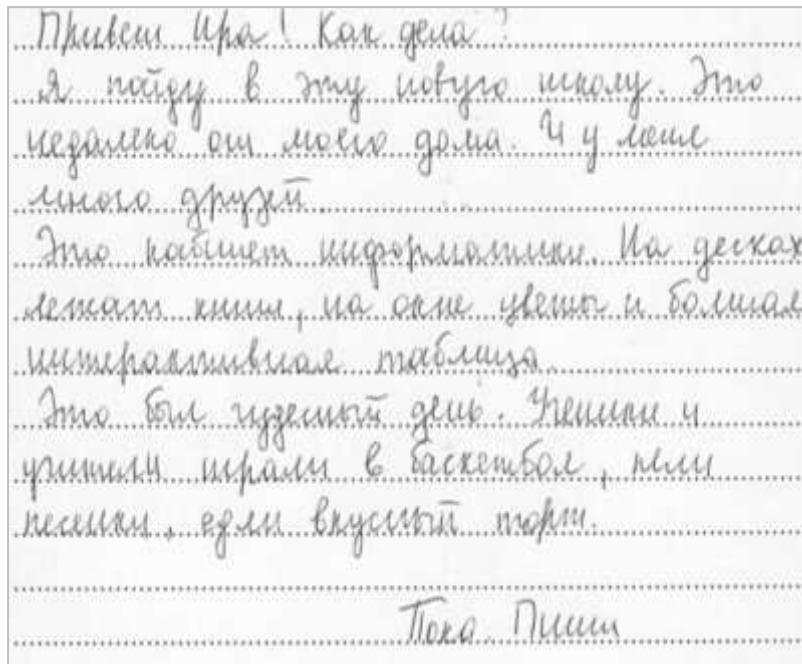 Привет Ира! Как дела?
Я пойду в эту новую школу. Это
недалеко от моего дома. И у меня
много друзей.
Это кабинет информатики. На десках
лежат книги, на окне цветы и болшая
интерактивная таблица.
Это был чудесный день. Ученики и
учители играли в баскетбол, пели
песенки, едли вкусный торт.
Пока. Пиши